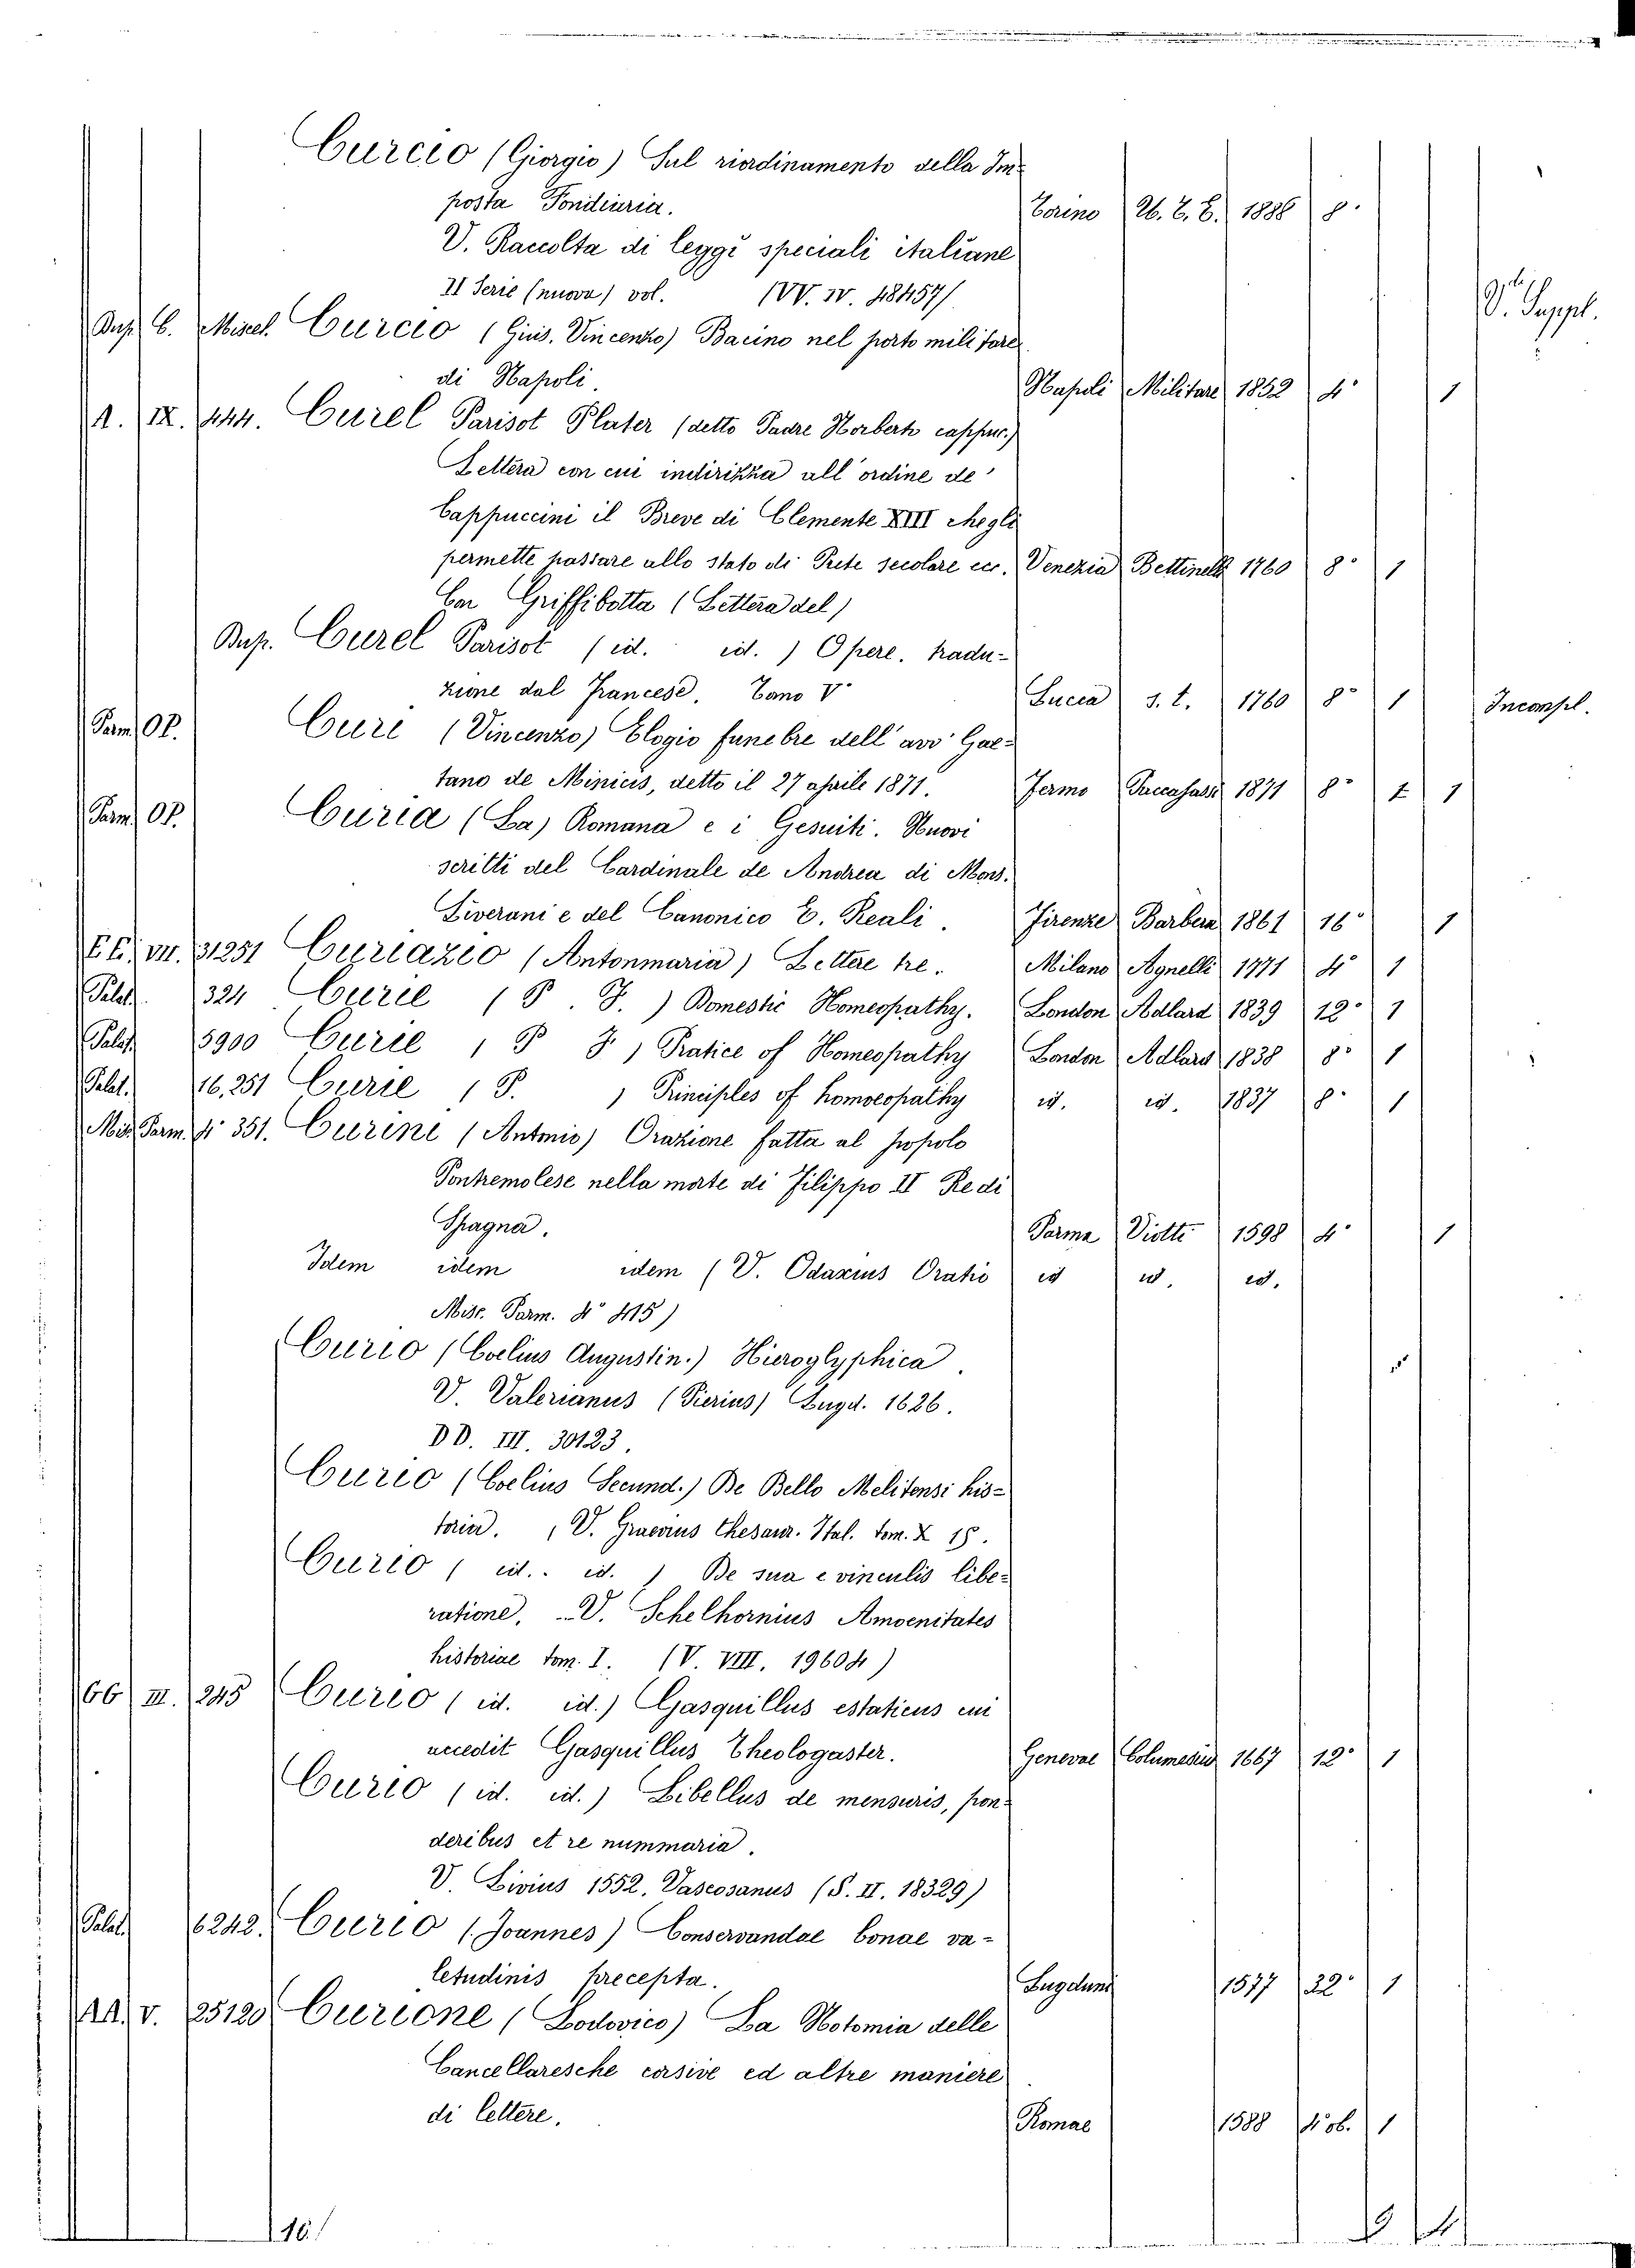 Curcio (Giorgio) Sul riordinamento della Im-
posta Fondiaria. Torino U. T. E. 1886 8°
V. Raccolta di leggi speciali italiane
II Serie (nuova) vol. (VV. IV. 48457)
V. Suppl.
Dup. C. Miscel. Curcio (Gius. Vincenzo) Bacino nel porto militare
di Napoli. Napoli Militare 1852 4° 1
A. IX. 444. Curel Parisot Plater (detto Padre Norberto cappuc.)
Lettera con cui indirizza all'ordine de'
Cappuccini il Breve di Clemente XIII che gli
permette passare allo stato di Prete secolare ecc. Venezia Bettinelli 1760 8° 1
Car Griffibotta (Lettera del)
Dup. Curel Parisot (id. id.) Opere. tradu-
zione dal Francese. Tomo V° Lucca s. t. 1760 8° 1 Incompl.
Parm. OP. Curi (Vincenzo) Elogio funebre dell'avv° Gae-
tano de Minicis, detto il 27 aprile 1871. Fermo Paccasassi 1871 8° 1 1
Parm. OP. Curia (La) Romana e i Gesuiti. Nuovi
scritti del Cardinale de Andrea di Mons.
Liverani e del Canonico E. Reali. Firenze Barbera 1861 16° 1
EE. VII. 31251 Curiazio (Antonmaria) Lettere tre. Milano Agnelli 1771 4° 1
Palat. 324 Curie (P. F.) Domestic Homeopathy. London Adlard 1839 12° 1
Palat. 5900 Curie (P F.) Pratice of Homeopathy London Adlard 1838 8° 1
Palat. 16,251 Curie (P. ) Principles of homoeopathy id. id. 1837 8° 1
Mis. Parm. 4° 351. Curini (Antonio) Orazione fatta al popolo
Pontremolese nella morte di Filippo II Re di
Spagna. Parma Viotti 1598 4° 1
Idem idem idem (V. Odaxius Oratio id id. id.
Misc. Parm. 4° 415)
Curio (Coelius Augustin.) Hieroglyphica.
V. Valerianus (Pierius) Lugd. 1626.
DD. III. 30123.
Curio (Coelius Secund.) De Bello Melitensi his-
toria. (V. Graevius Thesaur. Ital. tom. X 15.
Curio (id. id.) De sua e vinculis libe-
ratione. V. Schelhornius Amoenitates
historiae tom. I. (V. VIII. 19604)
GG III. 245 Curio (id. id.) Gasquillus estaticus cui
accedit Gasquillus Theologaster. Genevae Columesius 1667 12° 1
Curio (id. id.) Libellus de mensuris, pon-
deribus et re nummaria.
V. Livius 1552. Vascosanus (S. II. 18329)
Palat. 6242. Curio (Joannes) Conservandae bonae va-
letudinis precepta. Lugduni 1577 22° 1
AA. V. 25120 Curione (Lodovico) La Notomia delle
Cancellaresche corsive ed altre maniere
di lettere. Romae 1588 4° ob. 1